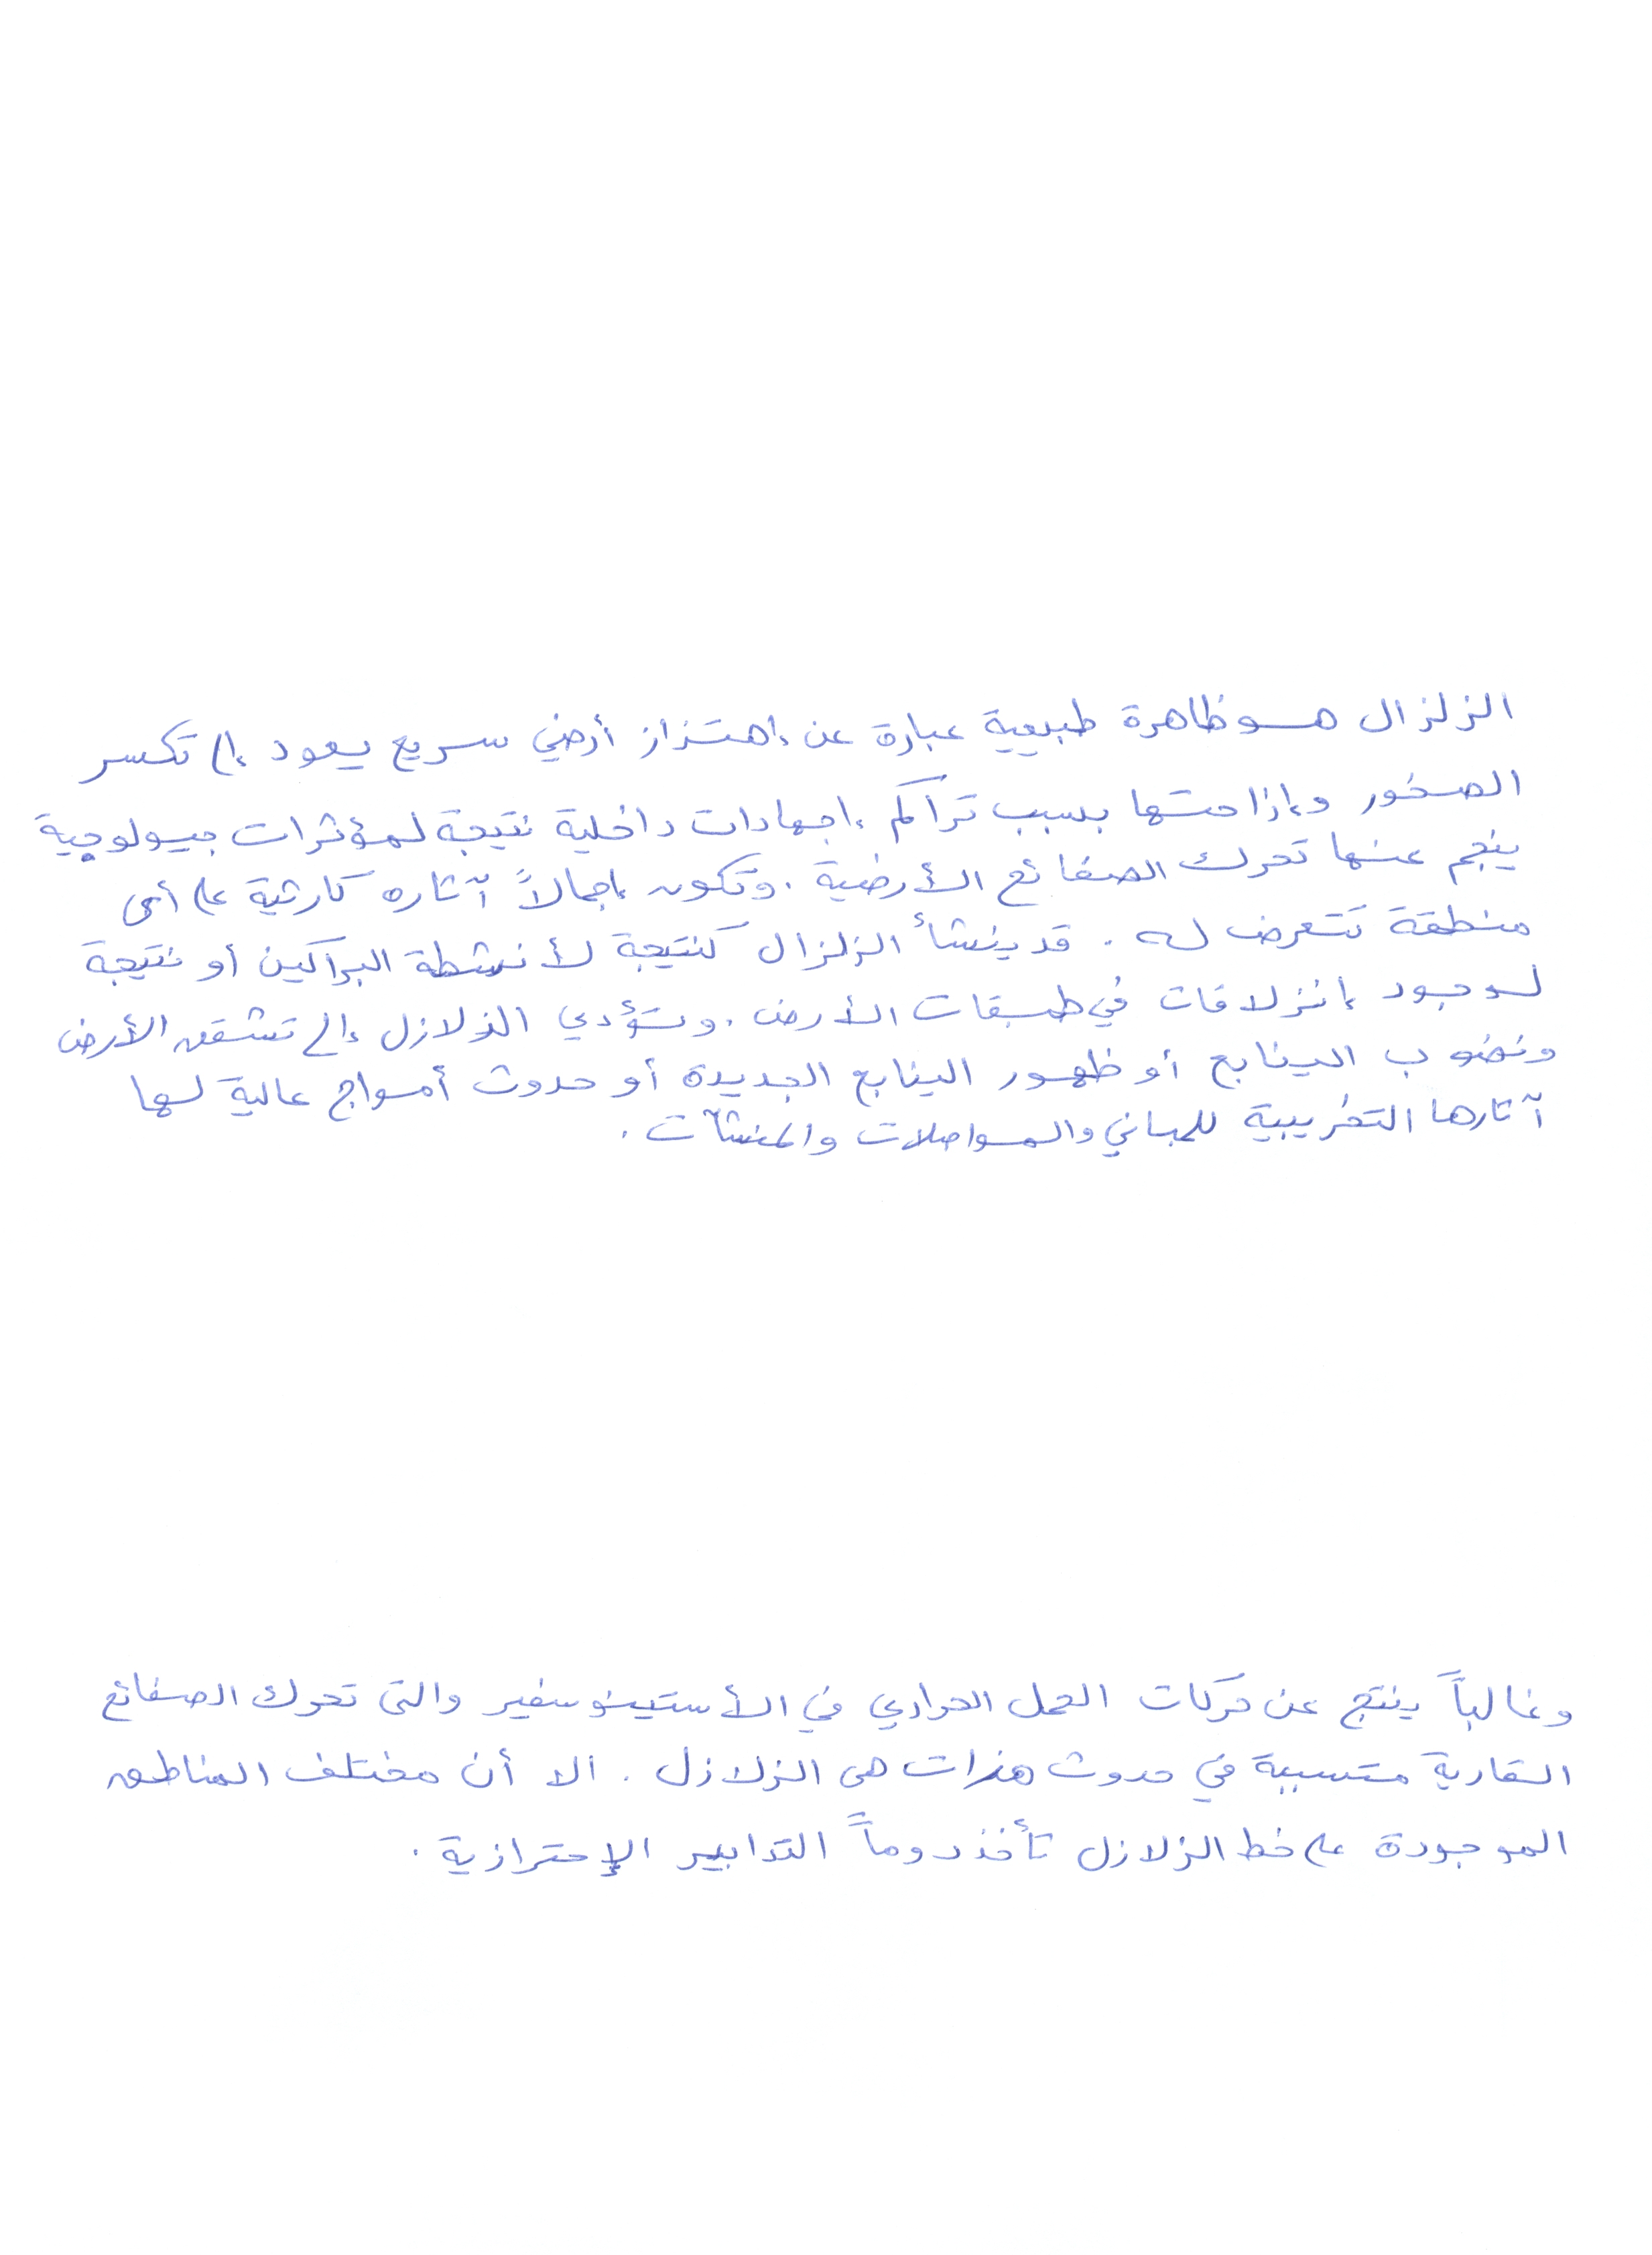 الزلزال هو ظاهرة طبيعية عبارة عن إهتزاز أرضي سريع يعود إلى تكسر
الصخور وإزاحتها بسبب تراكم إجهادات داخلية نتيجة لمؤثرات جيولوجية
ينجم عنها تحرك الصفائح الأرضية. وتكون إجمالاً آثاره كارثية على أى
منطقة تتعرض له. قد ينشأ الزلزال كنتيجة لأنشطة البراكين أو نتيجة
لوجود إنزلاقات في طبقات الأرض. وتؤدي الزلازل إلى تشقق الأرض
ونضوب الينابع أو ظهور الينابع الجديدة أو حدوث أمواج عالية لها
آثارها التخريبية للمباني والمواصلات والمنشآت.
وغالباً ينتج عن حركات الحمل الحراري في الأستينوسفير والتى تحرك الصفائح
القارية متسببة في حدوث هزات هى الزلازل. الا أن مختلف المناطق
الموجودة على خط الزلازل تأخذ دوماً التدابير الإحترازية.